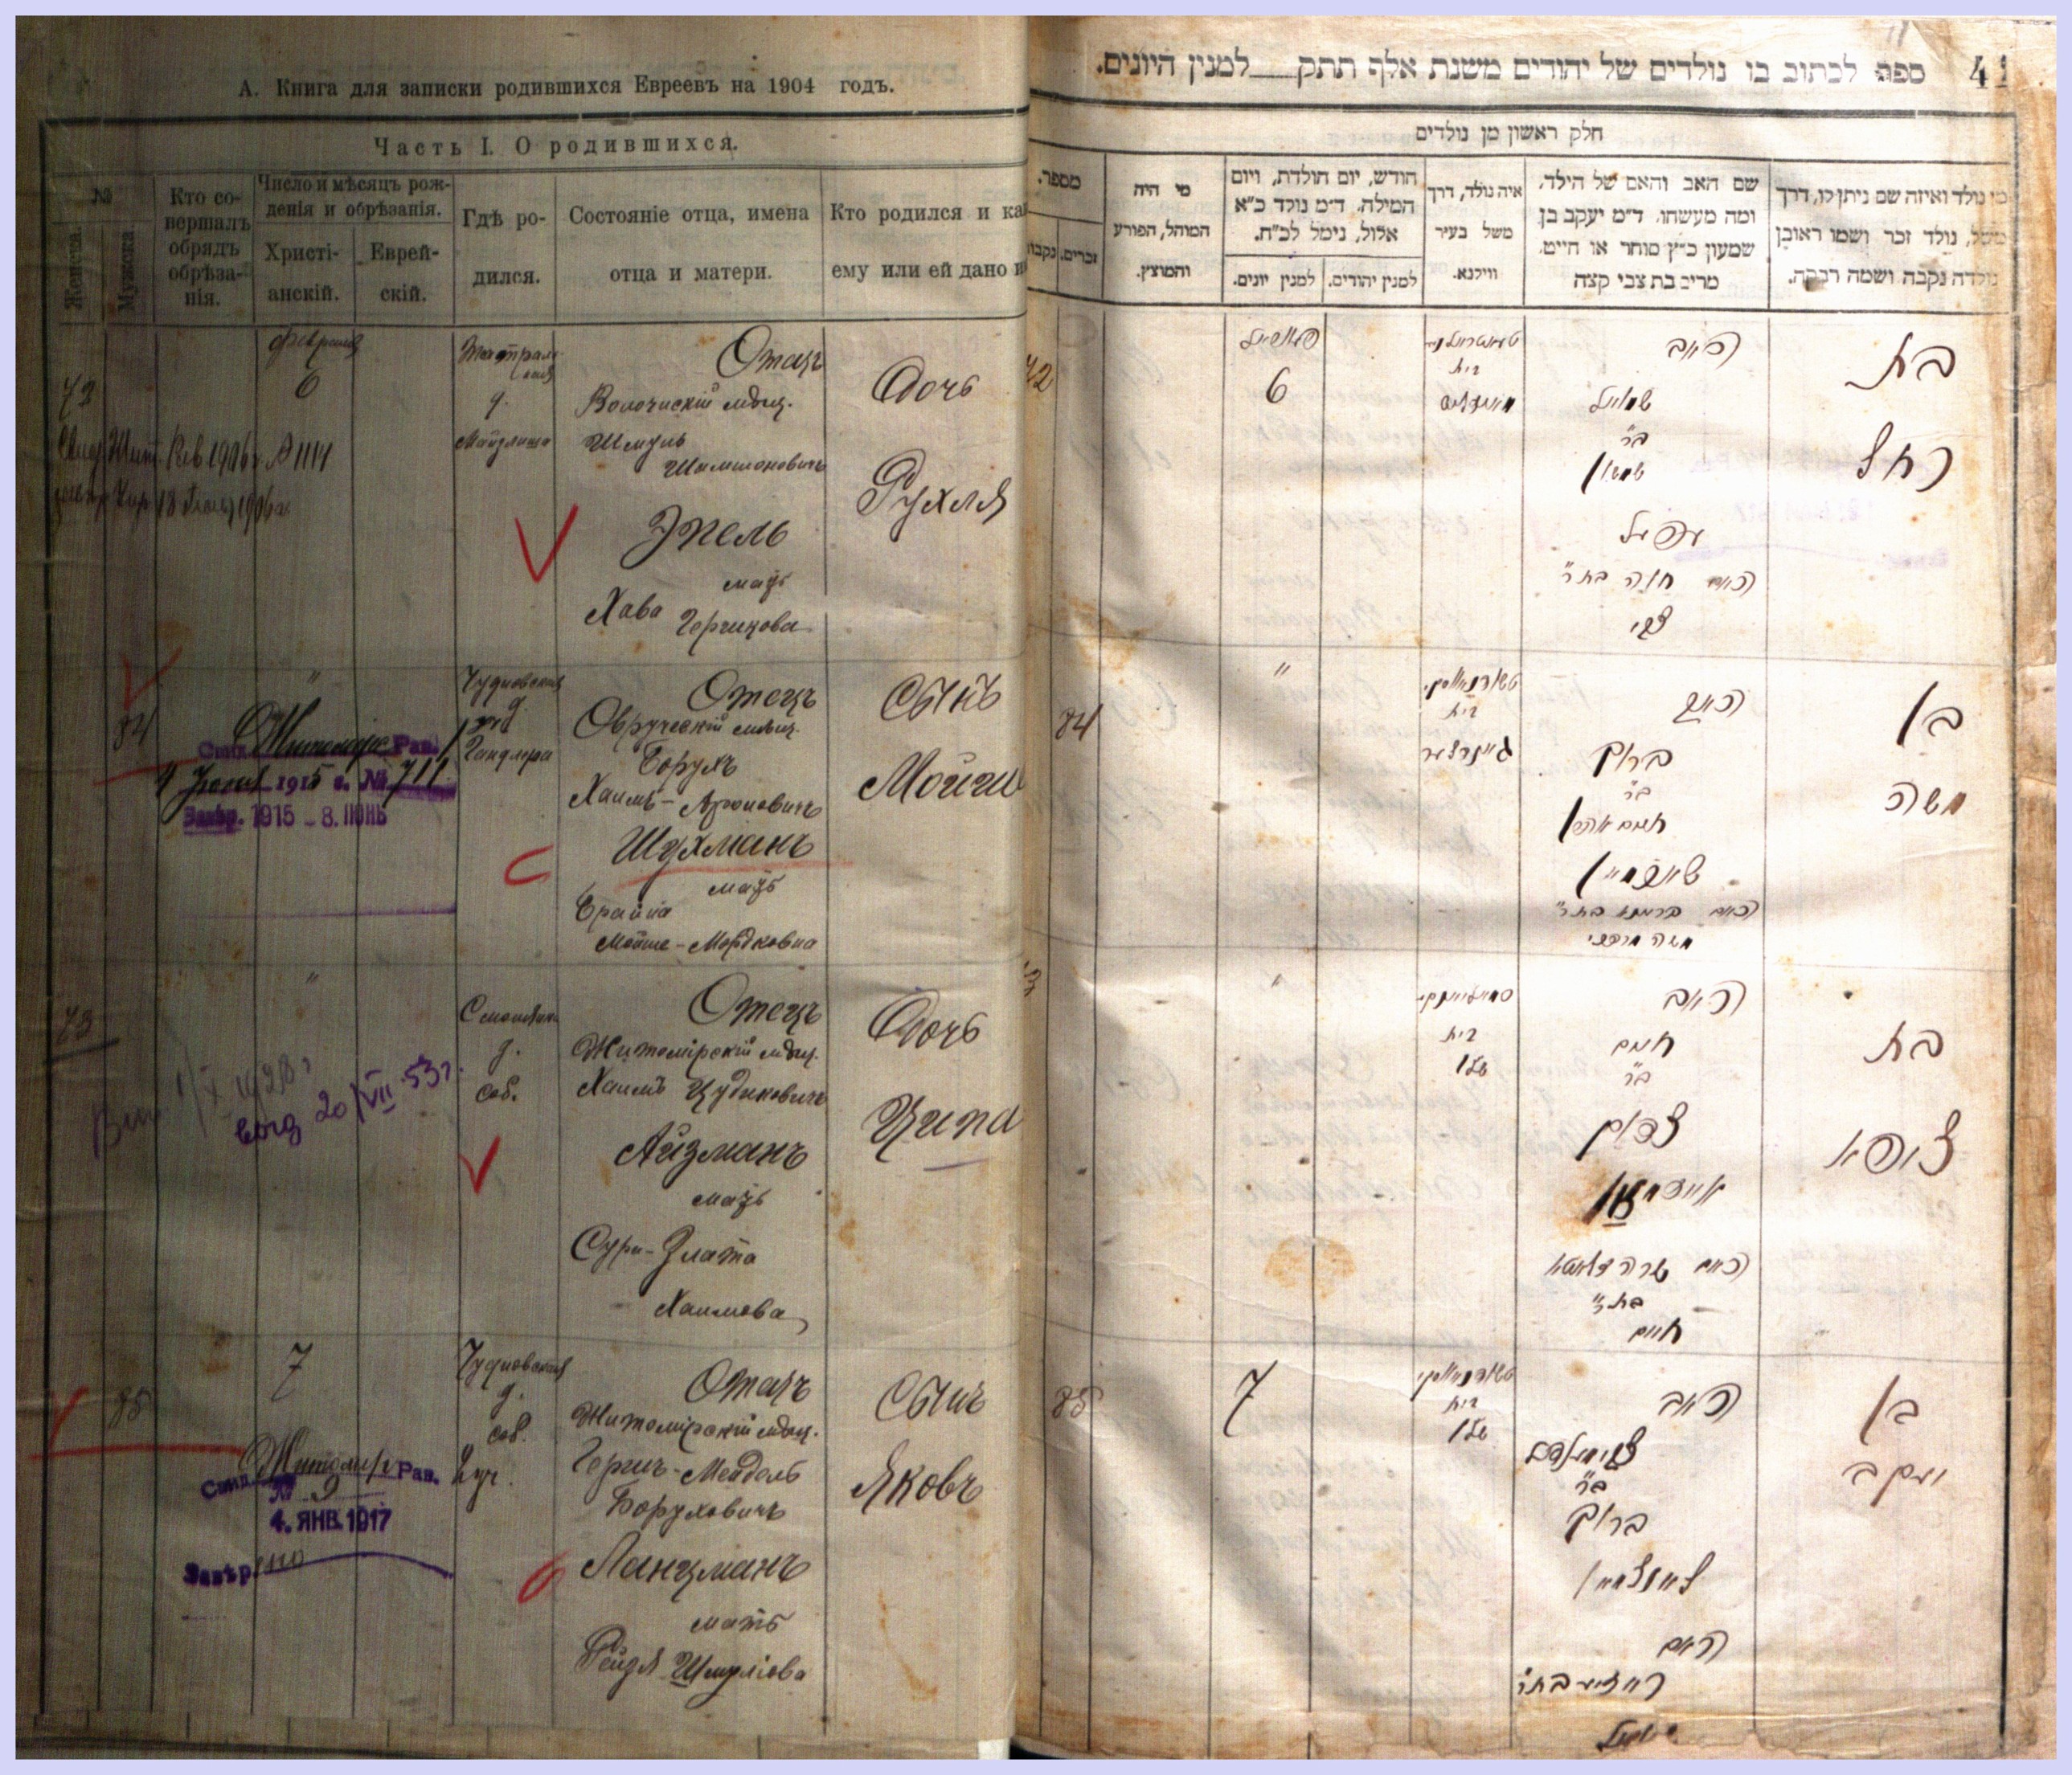 А. Книга для записки родившихся Евреевъ на 1904 годъ.
Часть I. О родившихся.
№
Женска.
Мужска.
Кто совершалъ обрядъ обрѣзанія.
Число и мѣсяцъ рожденія и обрѣзанія.
Христіанскій.
Еврейскій.
Гдѣ родился.
Состояніе отца, имена отца и матери.
Кто родился и ка
ему или ей дано и
Февраля
6
д.
Отецъ
мѣщ.
Шмуль
Шимшоновичъ
Эпель
мать
Хава Герчикова
Дочь
Рухля
84
"
Чудновская
д.
Отецъ
Овручскій мѣщ.
Борухъ
Хаимъ-Ароновичъ
Шухманъ
мать
Брайна
Мойше-Мордковна
Сынъ
Мойше
Свид. Житомір. Рав.
4 Іюня 1915 г. № 711
Завѣр. 1915 - 8. ІЮНЬ
73
"
д.
соб.
Отецъ
Житомірскій мѣщ.
Хаимъ Цудиковичъ
Айзманъ
мать
Сура-Злата
Хаимова
Дочь
Ципа
20/VII 53 г.
85
7
Чудновская
д.
соб.
Отецъ
Житомірскій мѣщ.
Гершъ-Мендель
Боруховичъ
Ланцманъ
мать
Рейзя Шмуліова
Сынъ
Яковъ
Свид. Житомір. Рав.
№ 9
4. ЯНВ. 1917
Завѣр.
ספר לכתוב בו נולדים של יהודים משנת אלף תתק למנין היונים.
41
חלק ראשון מן נולדים
מי נולד ואיזה שם ניתן לו, דרך
משל, נולד זכר ושמו ראובן
נולדה נקבה ושמה רבקה.
שם האב והאם של הילד,
ומה מעשהו. ד״מ יעקב בן
שמעון כ״ץ סוחר או חייט,
מרים בת צבי קצה
איה נולד, דרך
משל בעיר
ווילנא.
חודש, יום הולדת, ויום
המילה. ד״מ נולד כ״א
אלול, נימל לכ״ח.
למנין יהודים.
למנין יונים.
מי היה
המוהל, הפורע
והמוצץ.
מספר.
זכרים.
נקבות
בת
רחל
האב
שמואל
ב״ר
שמשון
עפעל
האם חוה בת ר״
צבי
בית
6
בן
משה
האב
ברוך
ב״ר
חיים אהרן
האם בריינא בת ר״
משה מרדכי
בית
"
84
בת
ציפא
האב
חיים
ב״ר
צדוק
אייזמאן
האם שרה זלאטא
בת ר״
חיים
בית
שלו
"
בן
יעקב
האב
צבי מענדל
ב״ר
ברוך
לאנצמאן
האם
רייזיע בת ר״
שמואל
בית
שלו
7
85